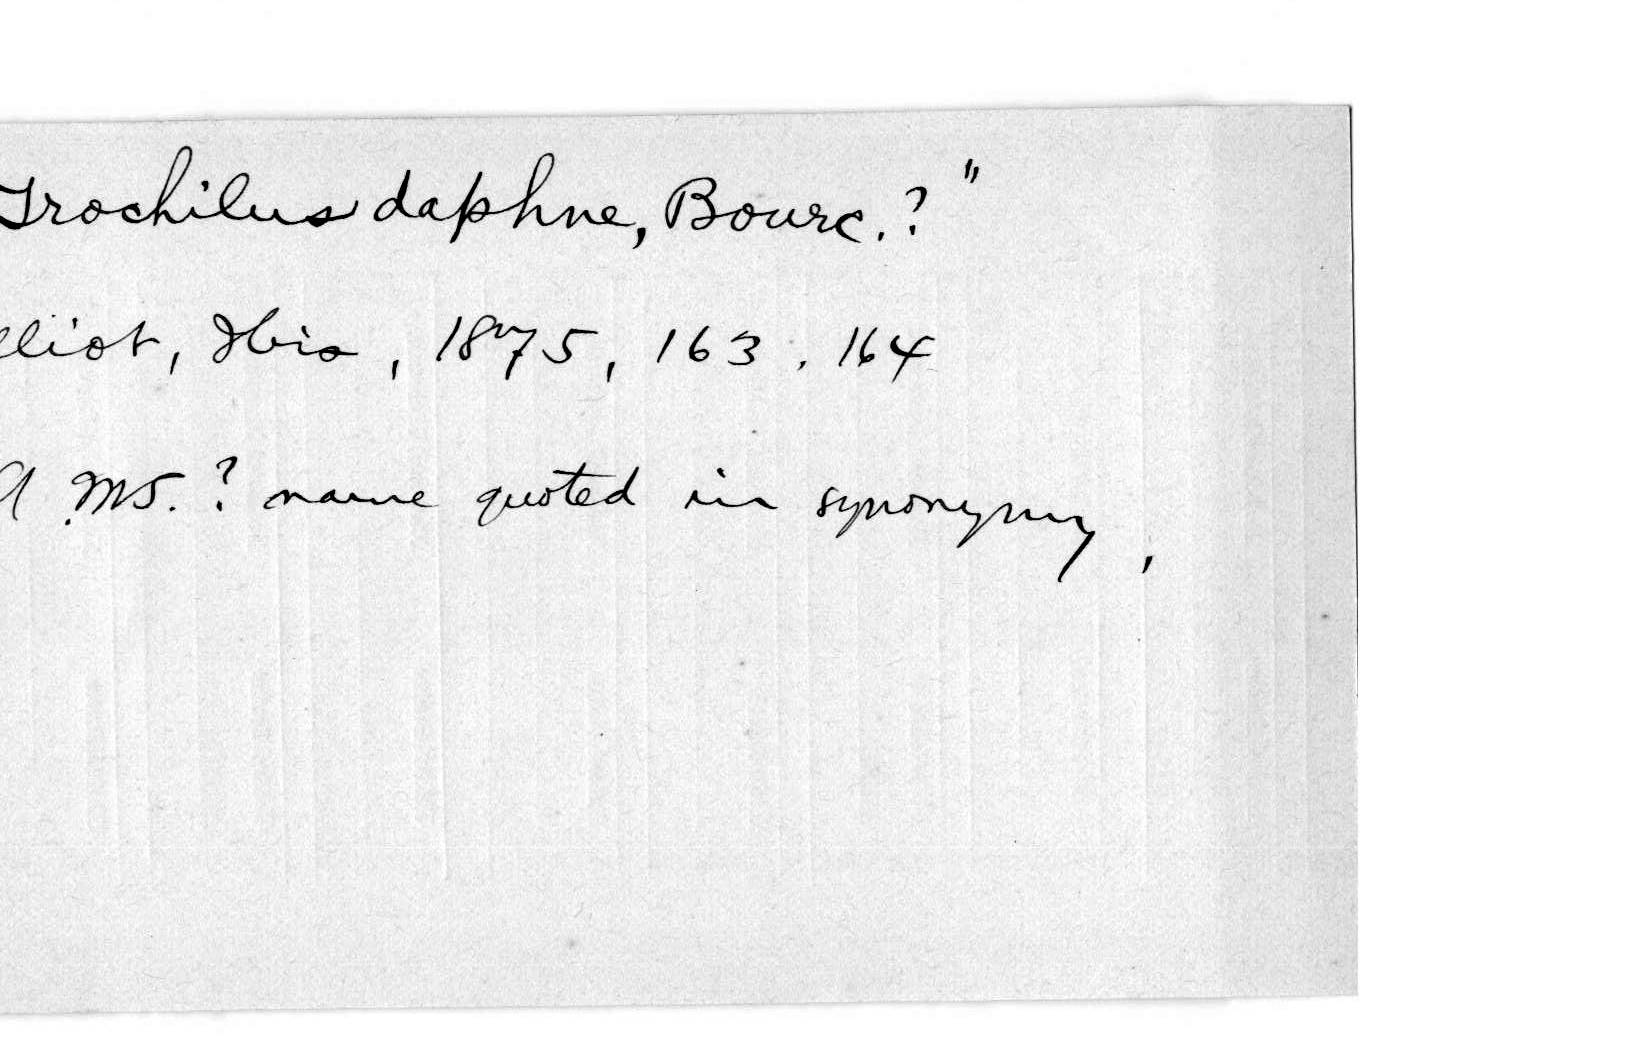 Trochilus daphne, Bourc.?"
lliot, Ibis, 1875, 163, 164
A MS.? name quoted in synonymy,